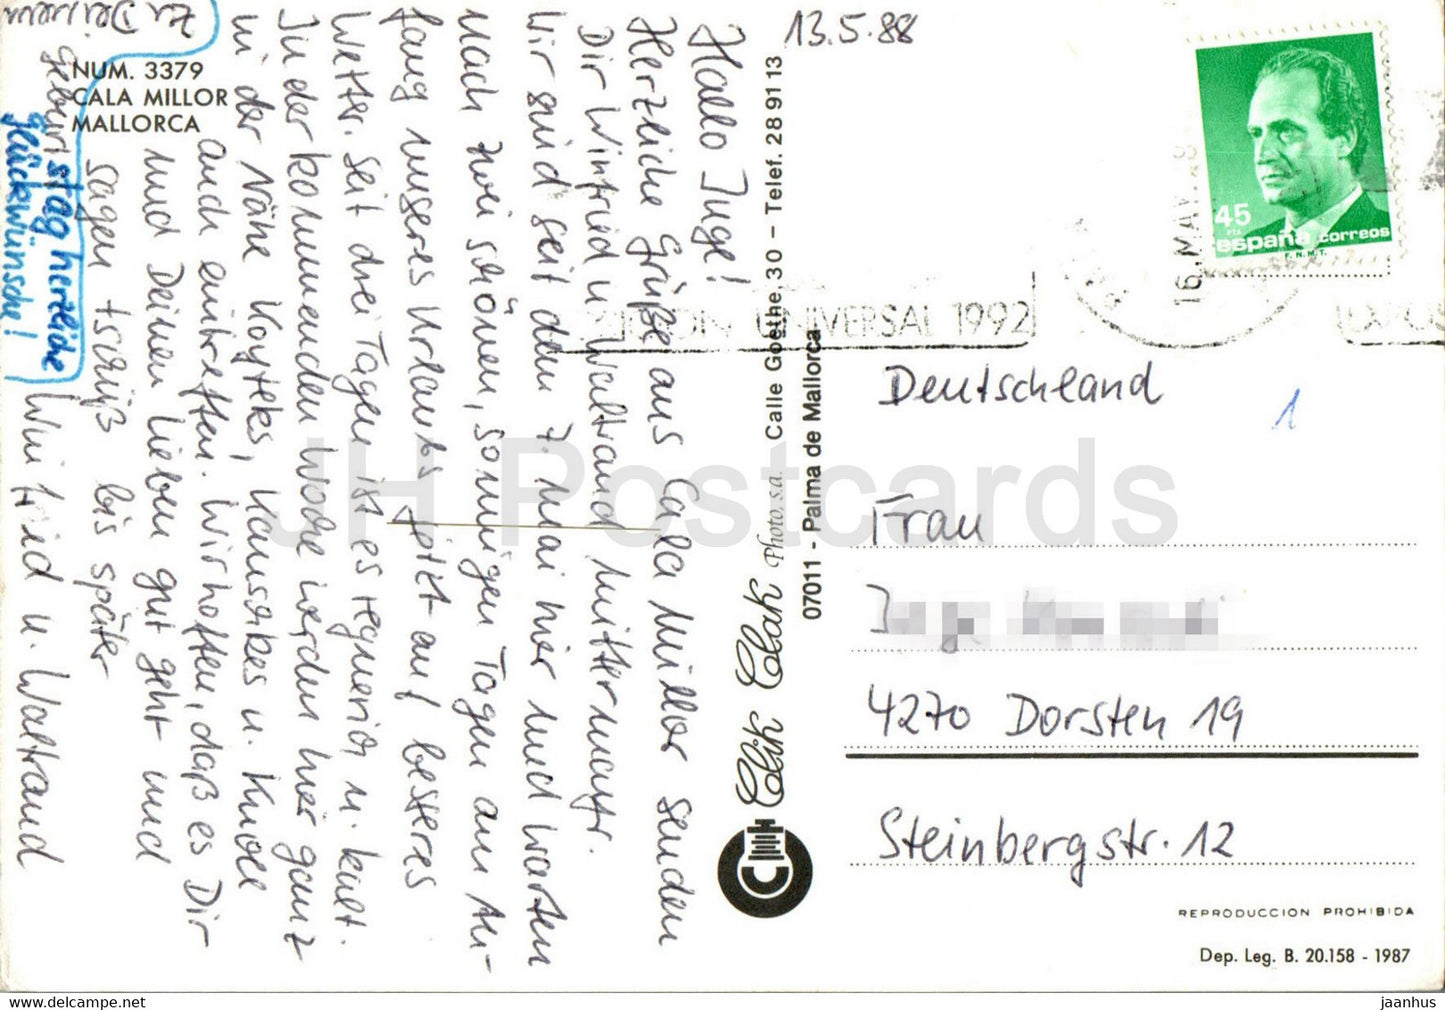 13.5.88
Hallo Inge!
Herzliche Grüße aus Cala Millor senden
Dir Winfried u. Waltraud
Wir sind seit dem 7. Mai hier und warten
nach zwei schönen, sonnigen Tagen am An-
fang unseres Urlaubs jetzt auf besseres
Wetter. Seit drei Tagen ist es regnerisch u. kalt.
In der kommenden Woche werden hier ganz
in der Nähe
auch eintreffen. Wir hoffen, daß es Dir
und Deinen Lieben gut geht und
sagen tschüß bis später
Winfried u. Waltraud
Zu Deinem
geburtstag herzliche
glückwünsche!
NUM. 3379
CALA MILLOR
MALLORCA
Clik Clak Photo, s.a. Calle Goethe, 30 - Telef. 28 91 13
07011 - Palma de Mallorca
45
PTA
españa correos
F.N.M.T.
16 MAY
UNIVERSAL 1992
EXPOS
Deutschland
1
Frau
4270 Dorsten 19
Steinbergstr. 12
REPRODUCCION PROHIBIDA
Dep. Leg. B. 20.158 - 1987
JH Postcards
hip-postcard.com
jaanhus